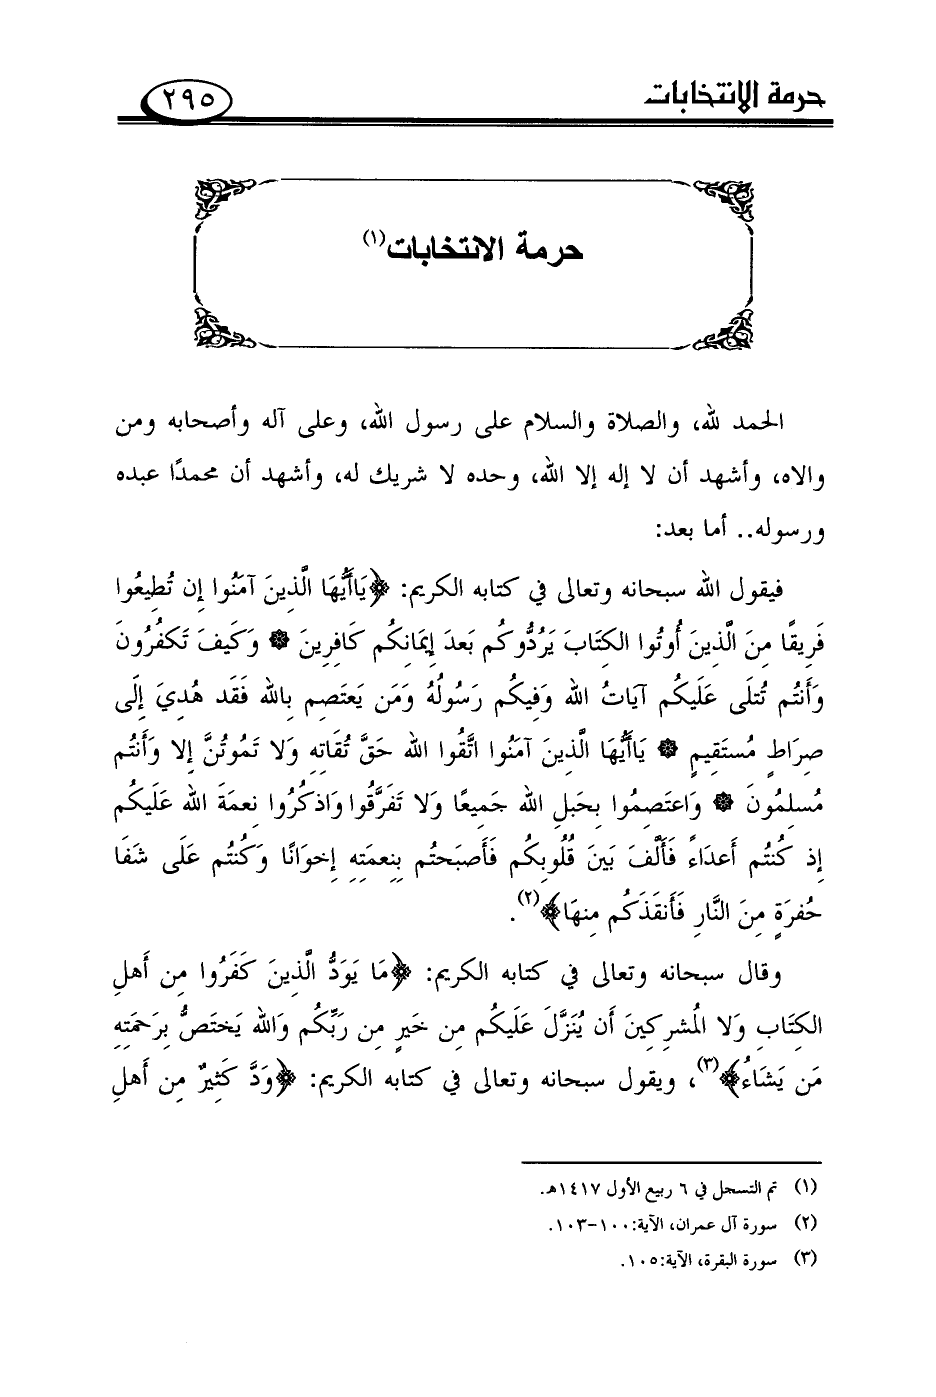 حرمة الانتخابات
٢٩٥
حرمة الانتخابات(١)
الحمد لله، والصلاة والسلام على رسول الله، وعلى آله وأصحابه ومن
والاه، وأشهد أن لا إله إلا الله، وحده لا شريك له، وأشهد أن محمدًا عبده
ورسوله.. أما بعد:
فيقول الله سبحانه وتعالى في كتابه الكريم: ﴿يَاأَيُّهَا الَّذِينَ آمَنُوا إِن تُطِيعُوا
فَرِيقًا مِنَ الَّذِينَ أُوتُوا الكِتَابَ يَرُدُّوكُم بَعدَ إِيمَانِكُم كَافِرِينَ * وَكَيفَ تَكفُرُونَ
وَأَنتُم تُتلَى عَلَيكُم آيَاتُ الله وَفِيكُم رَسُولُهُ وَمَن يَعتَصِم بِالله فَقَد هُدِيَ إِلَى
صِرَاطٍ مُستَقِيمٍ * يَاأَيُّهَا الَّذِينَ آمَنُوا اتَّقُوا الله حَقَّ تُقَاتِهِ وَلا تَمُوتُنَّ إِلا وَأَنتُم
مُسلِمُونَ * وَاعتَصِمُوا بِحَبلِ الله جَمِيعًا وَلا تَفَرَّقُوا وَاذكُرُوا نِعمَةَ الله عَلَيكُم
إِذ كُنتُم أَعدَاءً فَأَلَّفَ بَينَ قُلُوبِكُم فَأَصبَحتُم بِنِعمَتِهِ إِخوَانًا وَكُنتُم عَلَى شَفَا
حُفرَةٍ مِنَ النَّارِ فَأَنقَذَكُم مِنهَا﴾(٢).
وقال سبحانه وتعالى في كتابه الكريم: ﴿مَا يَوَدُّ الَّذِينَ كَفَرُوا مِن أَهلِ
الكِتَابِ وَلا المُشرِكِينَ أَن يُنَزَّلَ عَلَيكُم مِن خَيرٍ مِن رَبِّكُم وَالله يَختَصُّ بِرَحمَتِهِ
مَن يَشَاءُ﴾(٣)، ويقول سبحانه وتعالى في كتابه الكريم: ﴿وَدَّ كَثِيرٌ مِن أَهلِ
(١) تم التسجل في ٦ ربيع الأول ١٤١٧هـ.
(٢) سورة آل عمران، الآية:١٠٠-١٠٣.
(٣) سورة البقرة، الآية:١٠٥.